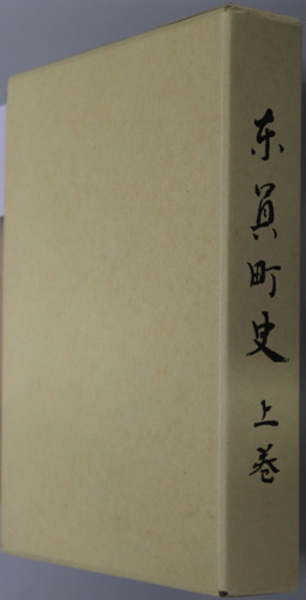 東員町史 上巻